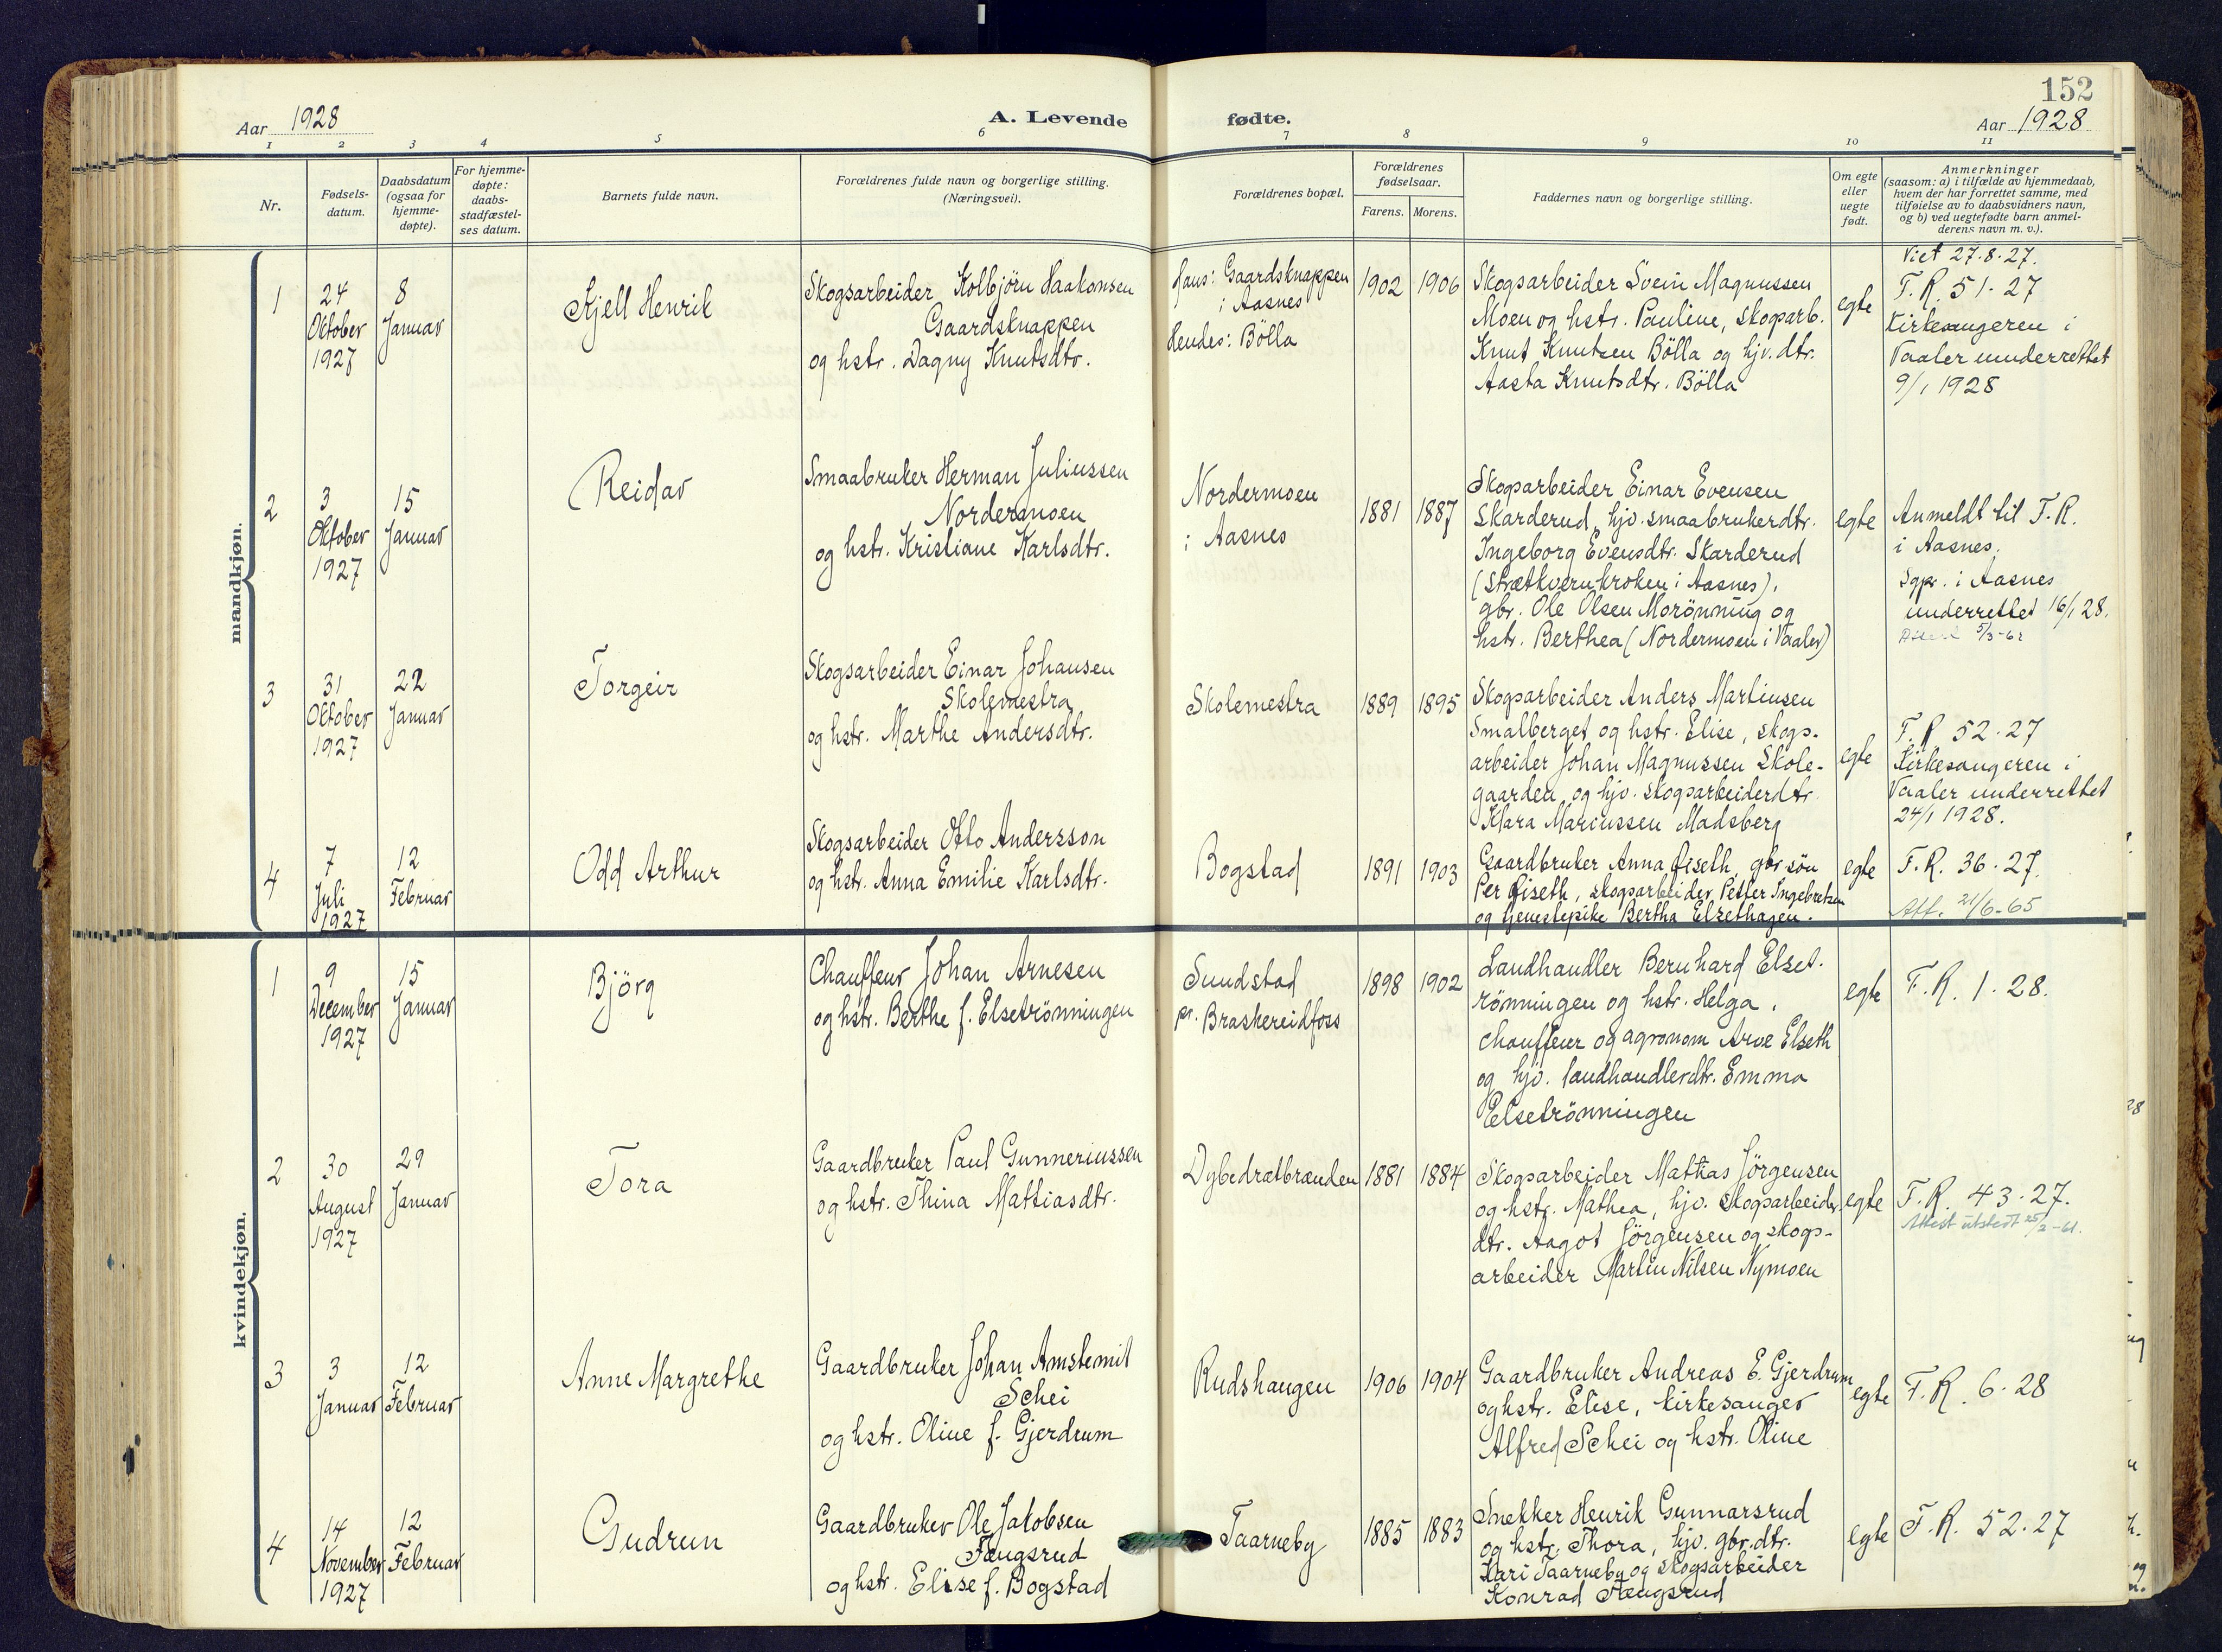 152
Aar 1928
A. Levende fødte.
Aar 1928
1 2 3 4 5 6 7 8 9 10 11
Nr.
Fødsels-
datum.
Daabsdatum
(ogsaa for
hjemme-
døpte).
For hjemme-
døpte:
daabs-
stadfæstel-
ses datum.
Barnets fulde navn.
Forældrenes fulde navn og borgerlige stilling.
(Næringsvei).
Forældrenes bopæl.
Forældrenes
fødselsaar.
Farens. Morens.
Faddernes navn og borgerlige stilling.
Om egte
eller
uegte
født.
Anmerkninger
(saasom: a) i tilfælde av hjemmedaab,
hvem der har forrettet samme, med
tilføielse av to daabsvidners navn,
og b) ved uegtefødte barn anmel-
derens navn m. v.).
mandkjøn.
1
24
Oktober
1927
8
Januar
Kjell Henrik
Skogsarbeider Kolbjörn Haakonsen
Gaardsknappen
og hstr. Dagny Knutsdtr.
Hans: Gaardsknappen
i Aasnes
Hendes: Bölla
1902
1906
Skogsarbeider Svein Magnussen
Moen og hstr. Pauline, skogarb.
Knut Knutsen Bölla og hjv. dtr.
Aasta Knutsdtr. Bölla
egte
Viet 27-8-27.
F.R. 51-27
Kirkesangeren i
Vaaler underrettet
9/1 1928
2
3
Oktober
1927
15
Januar
Reidar
Smaabruker Herman Juliussen
Nordermoen
og hstr. Kristiane Karlsdtr.
Nordermoen
i Aasnes
1881
1887
Skogsarbeider Einar Evensen
Skarderud, hjv. smaabrukerdtr.
Ingeborg Evensdtr. Skarderud
(Strætkvernkroken i Aasnes),
gbr. Ole Olsen Morönning og
hstr. Berthea (Nordermoen i Vaaler)
egte
Anmeldt til F.R.
i Aasnes.
Sgpr. i Aasnes
underrettet 16/1 28.
5/3-62
3
31
Oktober
1927
22
Januar
Torgeir
Skogsarbeider Einar Johansen
Skolemestra
og hstr. Marthe Andersdtr.
Skolemestra
1889
1895
Skogsarbeider Anders Martinsen
Smalberget og hstr. Elise, skogs-
arbeider Johan Magnussen Skole-
gaarden og hjv. skogsarbeiderdtr.
Klara Mariussen Madsberg
egte
F.R 52-27
Kirkesangeren i
Vaaler underrettet
24/1 1928.
4
7
Juli
1927
12
Februar
Odd Arthur
Skogsarbeider Otto Andersson
og hstr. Anna Emilie Karlsdtr.
Bogstad
1891
1903
Gaardbruker Anna Giseth, gbr.søn
Per Giseth, skogsarbeider Petter Ingebretsen
og tjenestepike Bertha Elsethagen.
egte
F.R. 36-27.
Att. 21/6-65
kvindekjøn.
1
9
December
1927
15
Januar
Björg
Chauffeur Johan Arnesen
og hstr. Berthe f. Elsetrönningen
Sundstad
pr. Braskereidfoss
1898
1902
Landhandler Bernhard Elset-
rönningen og hstr. Helga,
chauffeur og agronom Arve Elseth
og hjv. landhandlerdtr. Emma
Elsetrönningen
egte
F.R. 1-28.
2
30
August
1927
29
Januar
Tora
Gaardbruker Paul Gunneriussen
og hstr. Thina Mattiasdtr.
Dybedrætbrænden
1881
1884
Skogsarbeider Mathias Jörgensen
og hstr. Mathea, hjv. Skogsarbeider
dtr. Aagot Jörgensen og skogs-
arbeider Martin Nilsen Nymoen
egte
F.R. 43-27.
Attest utstedt 25/2-61.
3
3
Januar
12
Februar
Anne Margrethe
Gaardbruker Johan Amstemil
Schei
og hstr. Oline f. Gjerdrum
Rudshaugen
1906
1904
Gaardbruker Andreas E. Gjerdrum
og hstr. Elise, kirkesanger
Alfred Schei og hstr. Oline
egte
F.R. 6-28
4
14
November
1927
12
Februar
Gudrun
Gaardbruker Ole Jakobsen
Fængsrud
og hstr. Elise f. Bogstad
Taarneby
1885
1883
Snekker Henrik Gunnarsrud
og hstr. Thora, hjv. gbr.dtr.
Kari Taarneby og skogsarbeider
Konrad Fængsrud
egte
F.R. 52-27